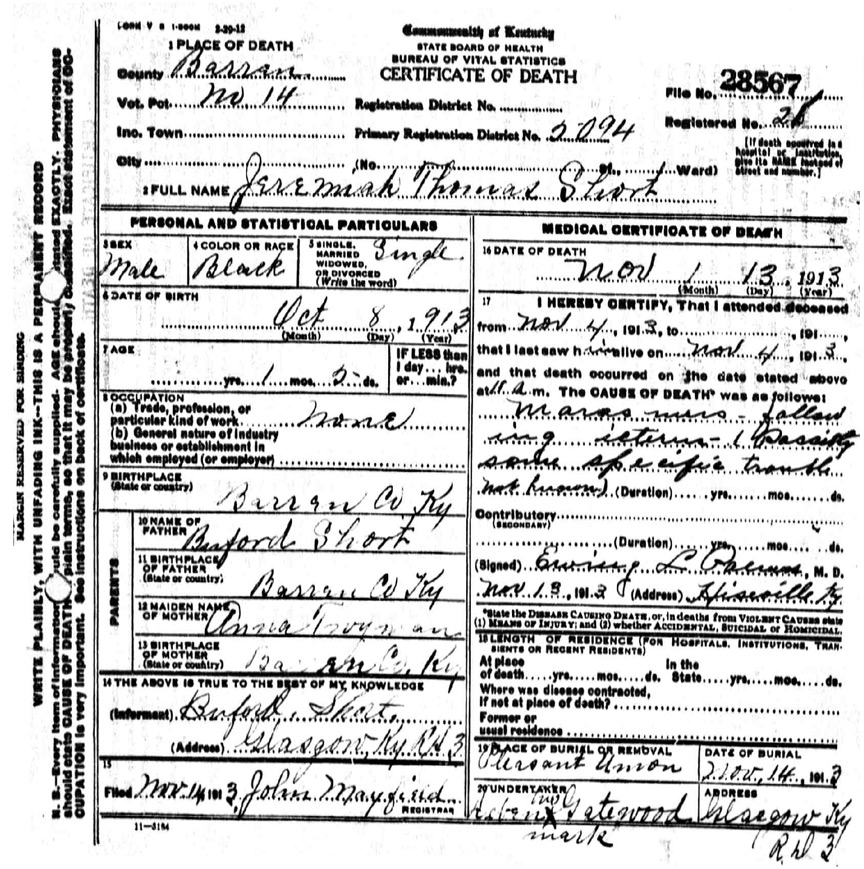 FORM V S 1-500M 3-29-12
Commonwealth of Kentucky
STATE BOARD OF HEALTH
BUREAU OF VITAL STATISTICS
CERTIFICATE OF DEATH
1 PLACE OF DEATH
County Barren
Vot. Pct. No 14
Inc. Town
City
Registration District No.
Primary Registration District No. 2094
(No. St., Ward)
File No. 28567
Registered No.
[If death occurred in a hospital or institution, give its NAME instead of street and number.]
2 FULL NAME Jeremiah Thomas Short
PERSONAL AND STATISTICAL PARTICULARS
3 SEX
Male
4 COLOR OR RACE
Black
5 SINGLE, MARRIED WIDOWED, OR DIVORCED (Write the word)
Single
6 DATE OF BIRTH
Oct 8, 1913
(Month) (Day) (Year)
7 AGE
yrs. 1 mos. 5 ds.
IF LESS than 1 day... hrs. or... min.?
8 OCCUPATION
(a) Trade, profession, or
particular kind of work none
(b) General nature of industry
business or establishment in
which employed (or employer)
9 BIRTHPLACE
(State or country)
Barren Co Ky
PARENTS
10 NAME OF FATHER
Buford Short
11 BIRTHPLACE OF FATHER
(State or country)
Barren Co Ky
12 MAIDEN NAME OF MOTHER
Anna Twyman
13 BIRTHPLACE OF MOTHER
(State or country)
Barren Co, Ky
14 THE ABOVE IS TRUE TO THE BEST OF MY KNOWLEDGE
(Informant) Buford Short
(Address) Glasgow, Ky R# 3
15
Filed Nov. 14, 1913, John Mayfield
REGISTRAR
11-3184
MEDICAL CERTIFICATE OF DEATH
16 DATE OF DEATH
Nov 13, 1913
(Month) (Day) (Year)
17 I HEREBY CERTIFY, That I attended deceased
from Nov 4, 1913, to , 191
that I last saw him alive on Nov 4, 1913,
and that death occurred on the date stated above
at 11 a m. The CAUSE OF DEATH* was as follows:
Marasmus - follow
ing icterus - Possibly
some specific trouble
not known (Duration) yrs. mos. ds.
Contributory
(SECONDARY)
(Duration) yrs. mos. ds.
(Signed) Ewing L , M. D.
Nov 13, 1913 (Address) Hiseville Ky
*State the DISEASE CAUSING DEATH, or, in deaths from VIOLENT CAUSES state
(1) MEANS OF INJURY; and (2) whether ACCIDENTAL, SUICIDAL or HOMICIDAL.
18 LENGTH OF RESIDENCE (FOR HOSPITALS, INSTITUTIONS, TRANSIENTS OR RECENT RESIDENTS)
At place of death yrs. mos. ds. In the State yrs. mos. ds.
Where was disease contracted,
if not at place of death?
Former or
usual residence
19 PLACE OF BURIAL OR REMOVAL
Pleasant Union
DATE OF BURIAL
Nov, 14, 1913
20 UNDERTAKER
his
X Gatewood
mark
ADDRESS
Glasgow Ky
R. D 3
MARGIN RESERVED FOR BINDING
WRITE PLAINLY, WITH UNFADING INK—THIS IS A PERMANENT RECORD
N. B.—Every item of information should be carefully supplied. AGE should be stated EXACTLY. PHYSICIANS
should state CAUSE OF DEATH in plain terms, so that it may be properly classified. Exact statement of OC-
CUPATION is very important. See instructions on back of certificate.